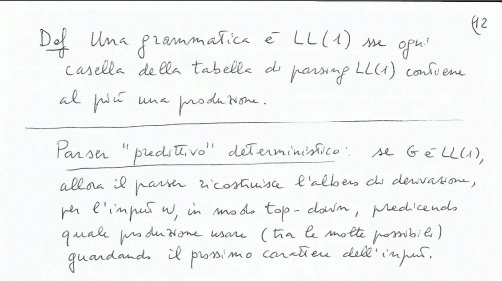 12
Def Una grammatica è LL(1) sse ogni
casella della tabella di parsing LL(1) contiene
al più una produzione.
Parser "predittivo" deterministico: se G è LL(1),
allora il parser ricostruisce l'albero di derivazione,
per l'input w, in modo top-down, predicendo
quale produzione usare (tra le molte possibili)
guardando il prossimo carattere dell'input.